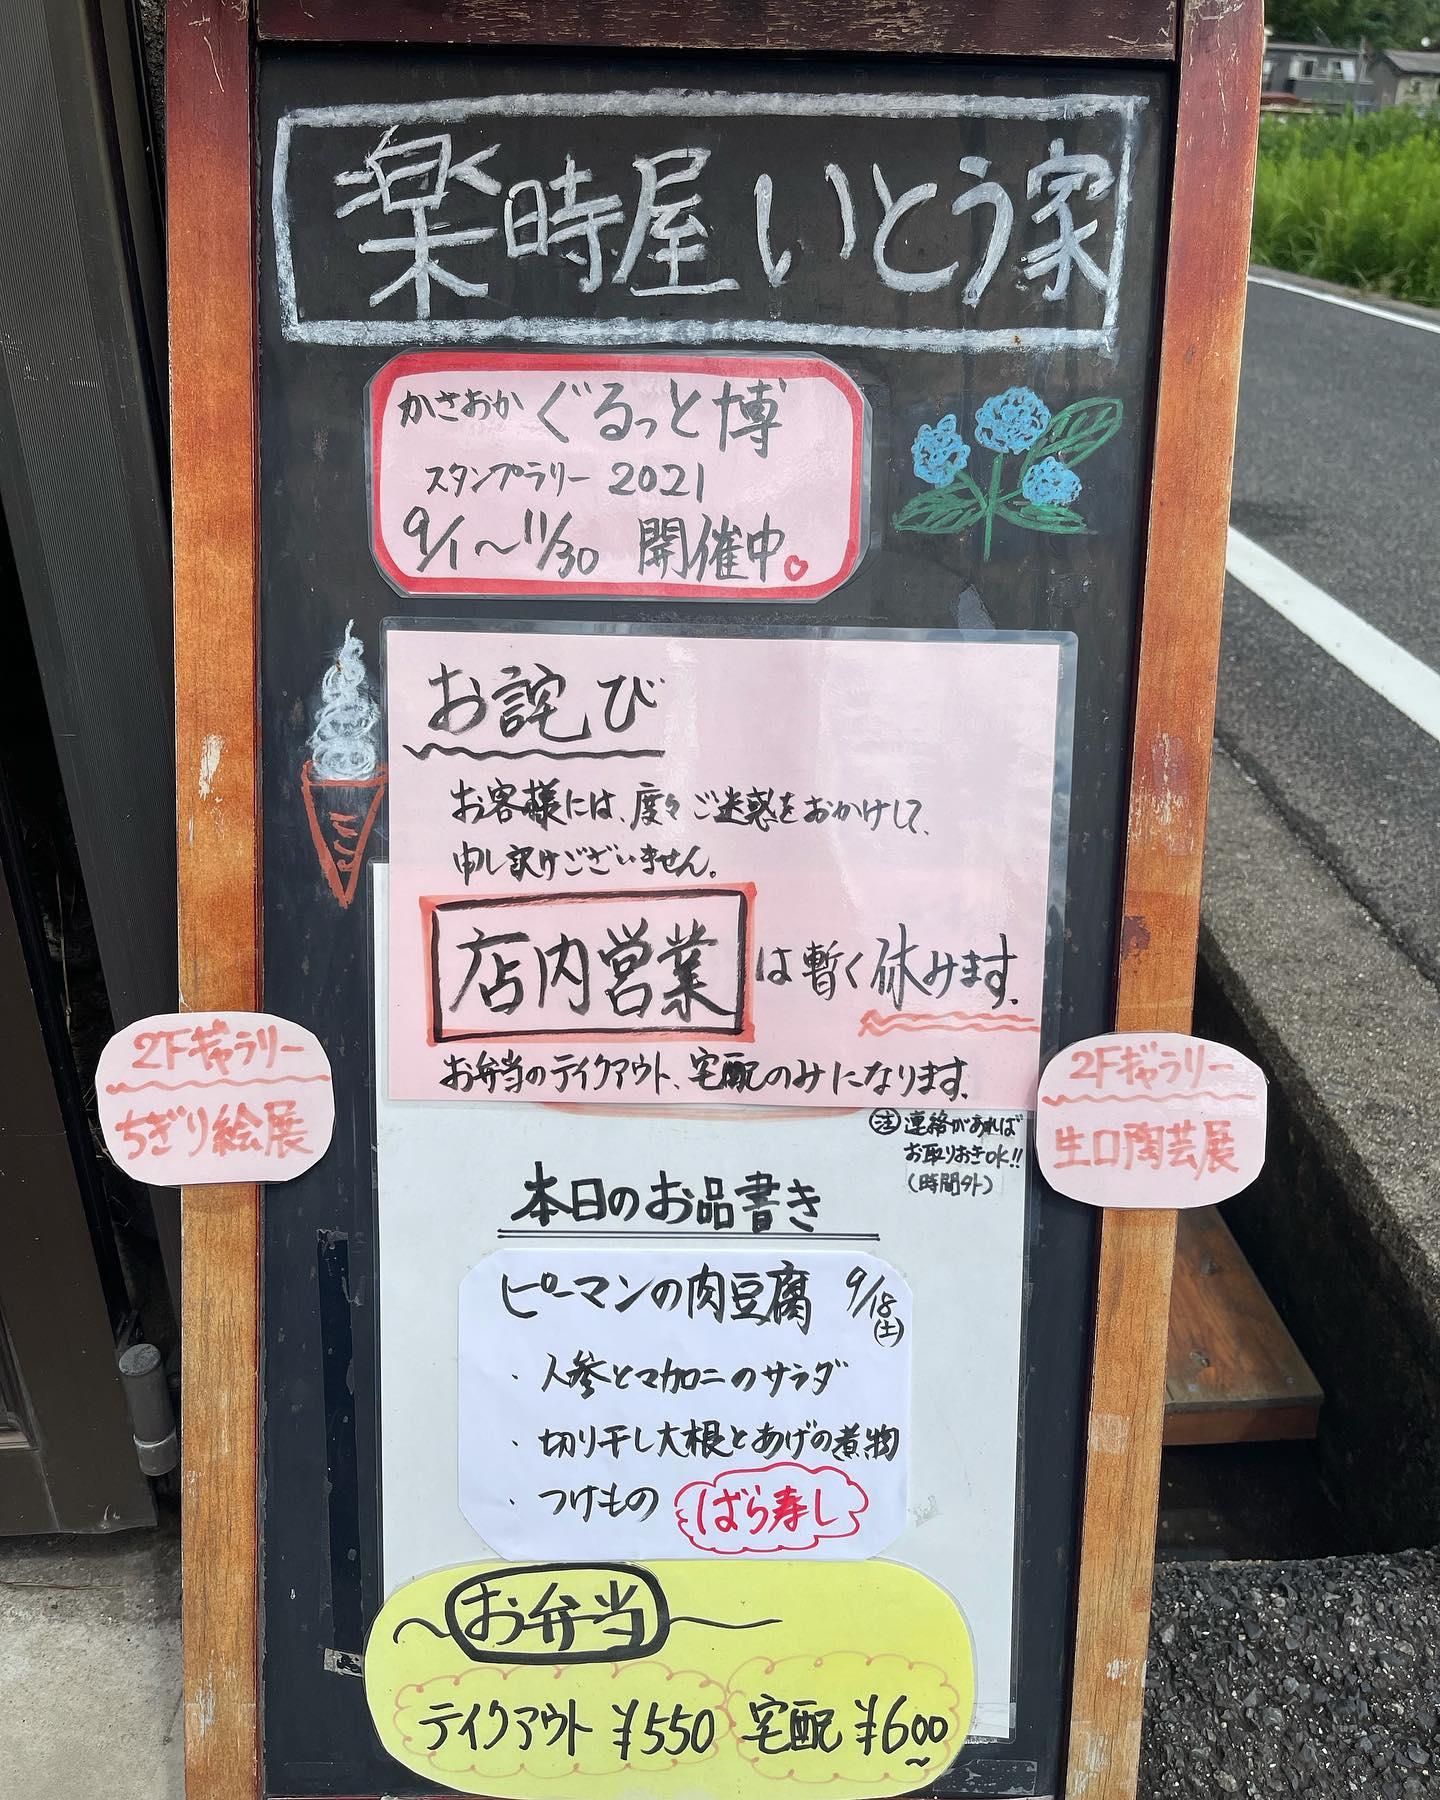 楽時屋 いとう家
かさおか ぐるっと博
スタンプラリー 2021
9/1〜11/30 開催中。
お詫び
お客様には、度々ご迷惑をおかけして、
申し訳けございません。
店内営業 は暫く休みます。
お弁当のテイクアウト、宅配のみになります。
2Fギャラリー
ちぎり絵展
2Fギャラリー
生口陶芸展
注 連絡があれば
お取りおきOK!!
(時間外)
本日のお品書き
ピーマンの肉豆腐 9/18
(土)
・人参とマカロニのサラダ
・切り干し大根とあげの煮物
・つけもの ばら寿し
お弁当
テイクアウト ¥550 宅配 ¥600〜